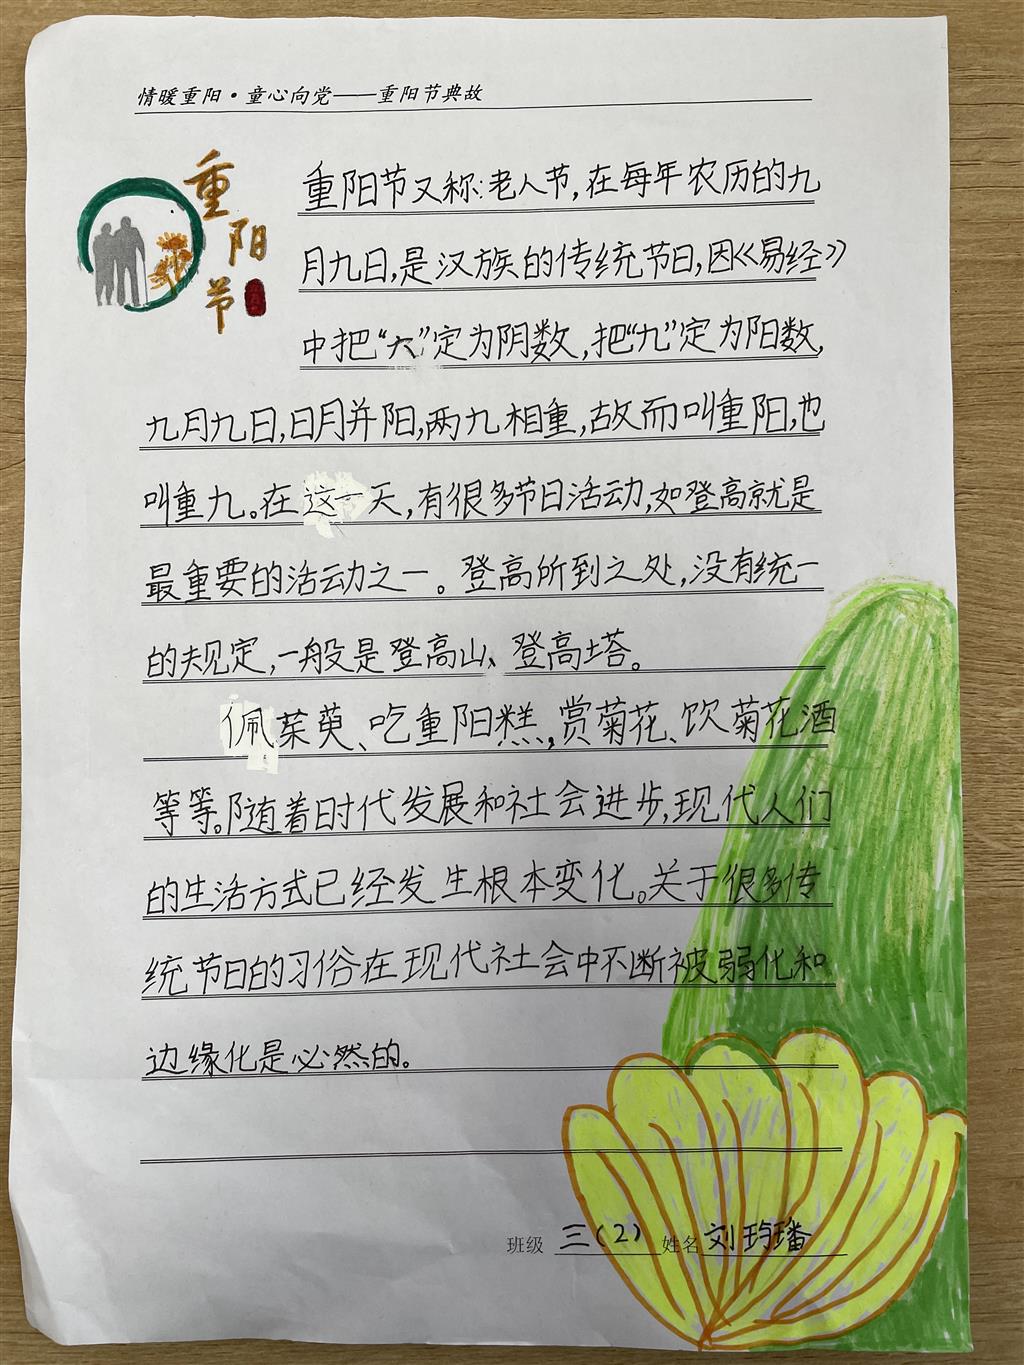 情暖重阳·童心向党——重阳节典故
重阳节
重阳节又称:老人节,在每年农历的九
月九日,是汉族的传统节日,因《易经》
中把“六”定为阴数,把“九”定为阳数,
九月九日,日月并阳,两九相重,故而叫重阳,也
叫重九。在这一天,有很多节日活动,如登高就是
最重要的活动之一。登高所到之处,没有统一
的规定,一般是登高山、登高塔。
佩茱萸、吃重阳糕,赏菊花、饮菊花酒
等等。随着时代发展和社会进步,现代人们
的生活方式已经发生根本变化。关于很多传
统节日的习俗在现代社会中不断被弱化和
边缘化是必然的。
班级 三(2) 姓名 刘玙璠